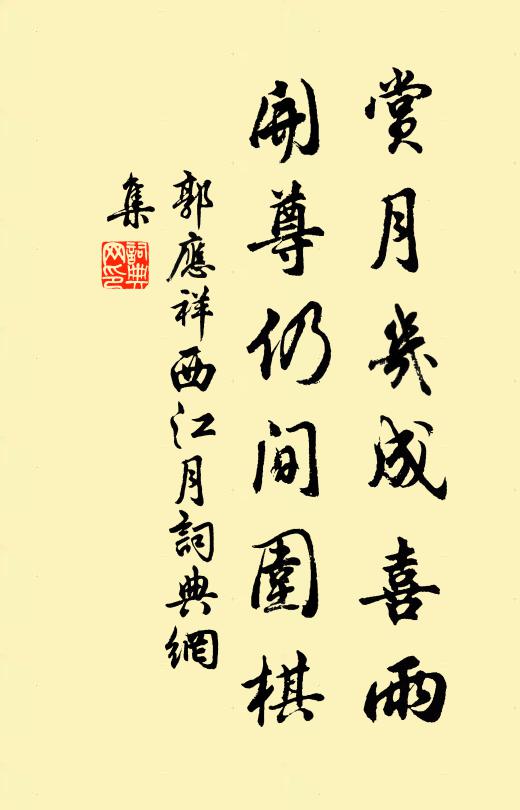 賞月幾成喜雨
開尊仍間圍棋
郭應祥西江月詞典網
集
詞典
网印